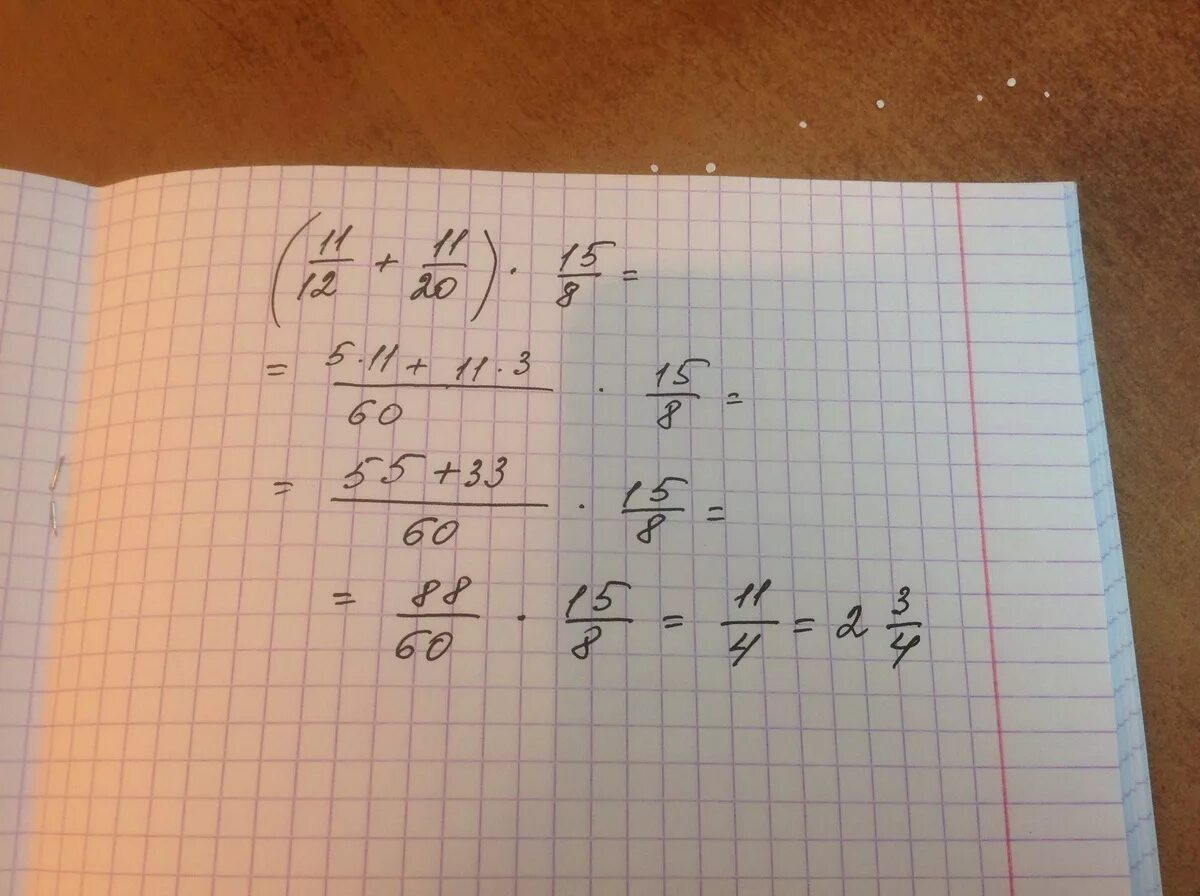 (11/12 + 11/20) · 15/8 =
= (5·11 + 11·3)/60 · 15/8 =
= (55 + 33)/60 · 15/8 =
= 88/60 · 15/8 = 11/4 = 2 3/4